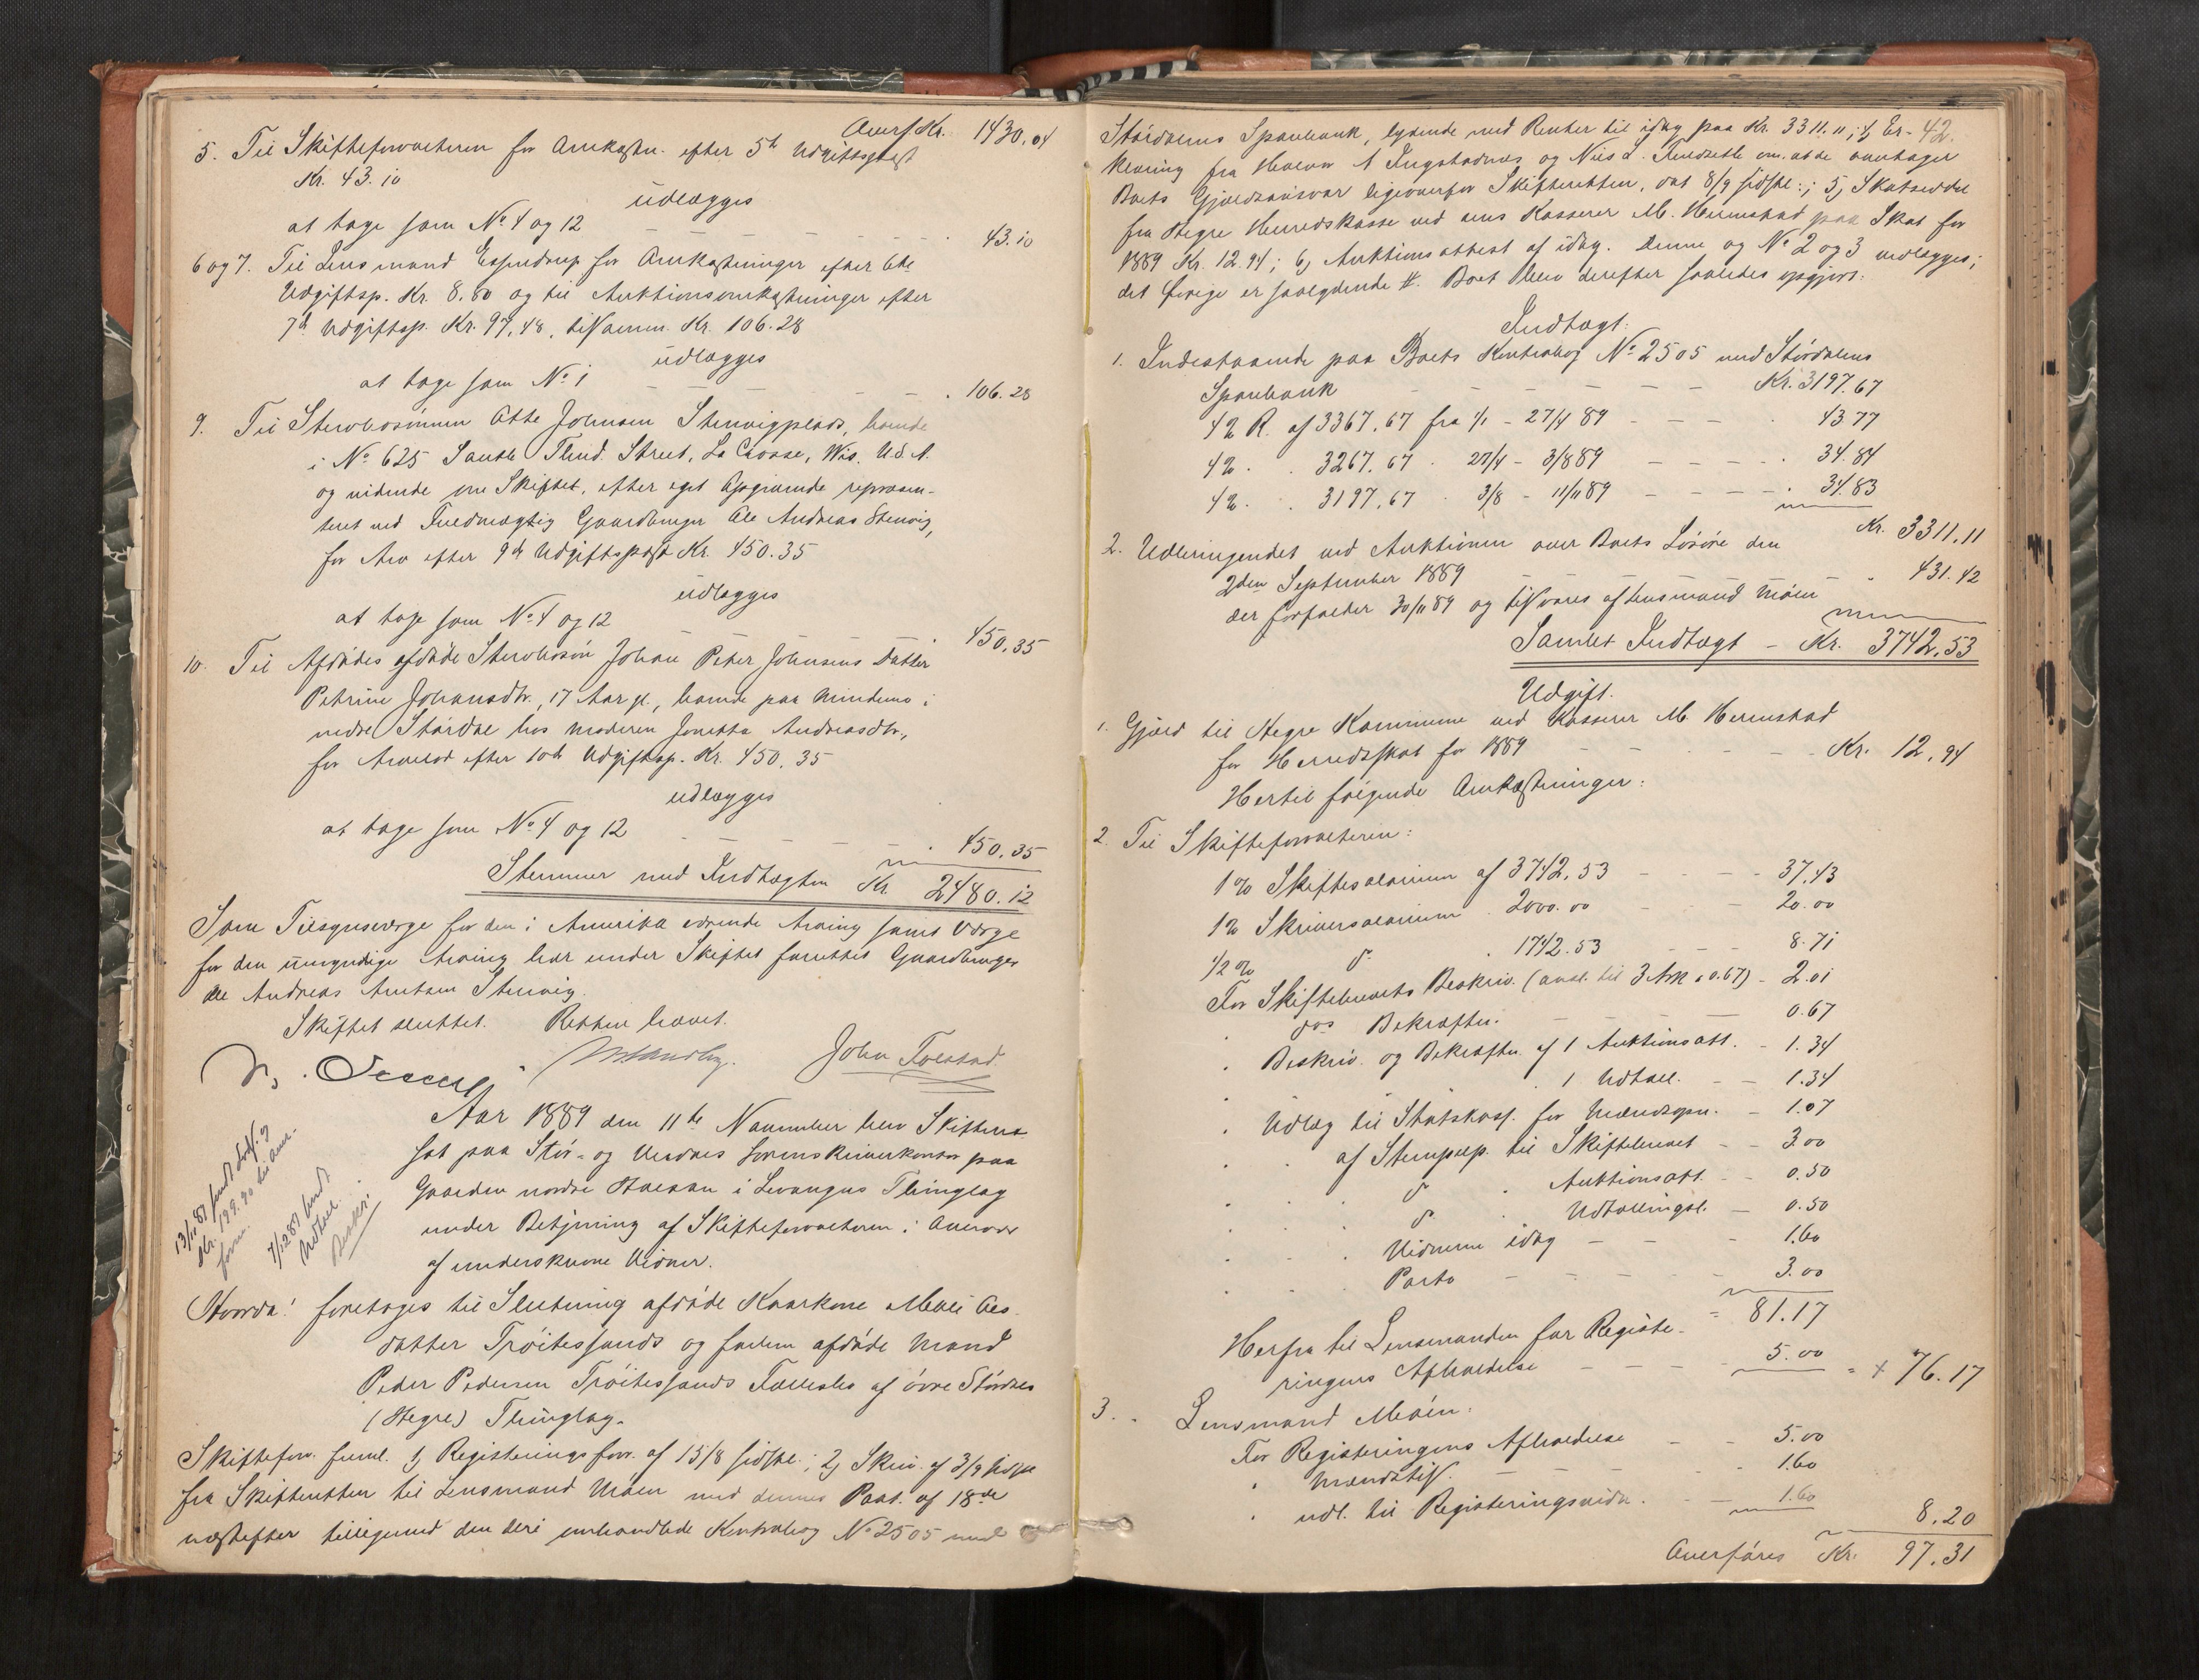 Overf. Kr. 1430.04
5. Til Skifteforvalteren for Omkostn. efter 5te Udgiftspost
Kr. 43.10
udlægges
at tage som No 4 og 12 — — — 43.10
6 og 7. Til Lensmand for Omkostninger efter 6te
Udgiftsp. Kr. 8.80 og til Auktionsomkostninger efter
7de Udgiftsp. Kr. 97.48, tilsamm. Kr. 106.28
udlægges
at tage som No 1 — — — 106.28
9. Til Sterbosønnen Otte Johnsen Stenvigplads, boende
i No 625 South Third Street, La Crosse, Wis. U.S.A.
og vidende om Skiftet, efter eget Opgivende repræsen-
teret ved Fuldmægtig Gaardbruger Ole Andreas Stenvig,
for Arv efter 9de Udgiftspost Kr. 450.35
udlægges
at tage som No 4 og 12 450.35
10. Til Afdødes afdøde Sterbosøn Johan Peter Johnsens Datter
Petrine Johansdtr., 17 Aar gl., boende paa Mindemo i
nedre Størdal hos Moderen Jonetta Andreasdtr.,
for Arvelod efter 10de Udgiftsp. Kr. 450.35
udlægges
at tage som No 4 og 12 — — — 450.35
Stemmer med Indtægten Kr. 2480.12
Som Tilsynsværge for den i Amerika værende Arving samt Værge
for den umyndige Arving har under Skiftet fungeret Gaardbruger
Ole Andreas Arntsen Stenvig.
Skiftet sluttet. Retten hævet.
John Folstad.
Aar 1889 den 11te November blev Skifteret
sat paa Stør- og Verdals Sorenskriverkontor paa
Gaarden nordre Halsan i Levangers Thinglag
under Betjening af Skifteforvalteren i Overvær
af underskrevne Vidner.
Hvorda: foretoges til Slutning afdøde Kaarkone Mali Ols-
datter Trøitessands og forlem afdøde Mand
Peder Pedersen Trøitessands Fællesbo af øvre Størdals
(Hegre) Thinglag.
Skifteforv. freml. 1) Registeringsforr. af 15/8 sidstl.; 2) Skriv. af 3/9 sidstl.
fra Skifteretten til Lensmand Møen med dennes Paat. af 18de
næstefter tilligemed den deri omhandlede Kontrabog No 2505 med
42.
Størdalens Sparebank, lydende med Renter til idag paa Kr. 3311.11; 4) Er-
klæring fra Halvor A Ingstadnæs og Nils L. om at de overtager
Boets Gjældsansvar ligeoverfor Skifteretten, dat 8/9 sidstl.; 5) Skatseddel
fra Hegre Herredskasse ved dens Kasserer M. Hermstad paa Skat for
1889 Kr. 12.94; 6) Auktionsattest af idag. Denne og No 2 og 3 vedlægges;
det øvrige er saalydende #. Boet blev derefter saaledes opgjort:
Indtægt:
1. Indestaaende paa Boets Kontrabog No 2505 med Størdalens
Sparebank — — — Kr. 3197.67
4% R. af 3367.67 fra 1/1 - 27/4 89 — — 43.77
4% . . 3267.67 . 27/4 - 3/8 89 — — 34.84
4% . . 3197.67 . 3/8 - 11/11 89 — — 34.83
Kr. 3311.11
2. Udbringendet ved Auktionen over Boets Løsøre den
2den September 1889 — — 431.42
der forfalder 30/11 89 og tilsvares af Lensmand Møen
Samlet Indtægt — Kr. 3742.53
Udgift.
1. Gjæld til Hegre Kommune ved Kasserer M. Hermstad
for Herredsskat for 1889 — — — Kr. 12.94
Hertil følgende Omkostninger:
2. Til Skifteforvalteren:
1% Skiftesalarium af 3742.53 — — 37.43
1% Skriversalarium . 2000.00 — — 20.00
1/2% do . 1742.53 — — 8.71
For Skiftebrevets Beskriv. (ansl. til 3 Ark a 0.67) — 2.01
. dos Bekræftn. — — — 0.67
. Beskriv. og Bekræftn. af 1 Auktionsatt. — 1.34
1 Udtall. — — 1.34
. Udlæg til Statskass. for Mændsopn. — 1.07
. . af Stempelp. til Skiftebrevet — — 3.00
. . do . Auktionsatt. — 0.50
. . do . Udtællingsl. — 0.50
. . . Vidnerne idag — — 1.60
. . . Porto — — — 3.00
81.17
Herfra til Lensmanden for Registe-
ringens Afholdelse — — — 5.00 = 76.17
3. . Lensmand Møen:
For Registeringens Afholdelse — — 5.00
. Mændstils. — — 1.60
. udl. til Registeringsvidn. — — 1.60
8.20
Overføres Kr. 97.31